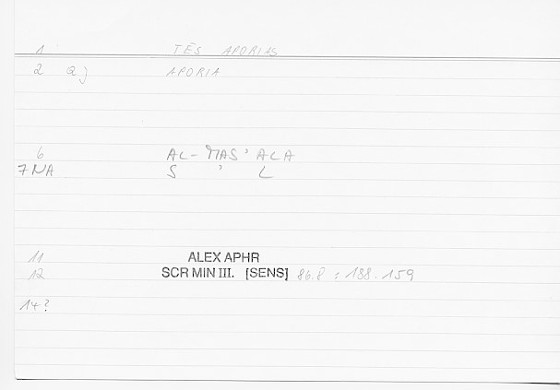 1 TĒS APORIAS
2 a) APORIA
6 AL-MAS'ALA
7 NA S ' L
11 ALEX APHR
12 SCR MIN III. [SENS] 86.8 : 188.159
14?